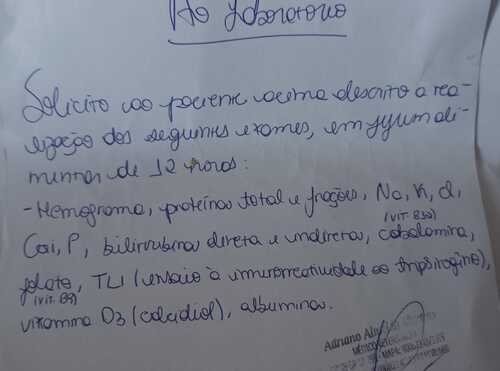 Ao Laboratório
Solicito ao paciente acima descrito a rea-
lização dos seguintes exames, em jejum ali-
mentar de 12 horas:
- Hemograma, proteína total e frações, Na, K, Cl,
Cai, P, bilirrubina direta e indireta, cobalamina,
(VIT. B12)
folato, TLI (ensaio à imunorreatividade ao tripsinogênio),
(VIT. B9)
vitamina D3 (calcidiol), albumina.
Adriano